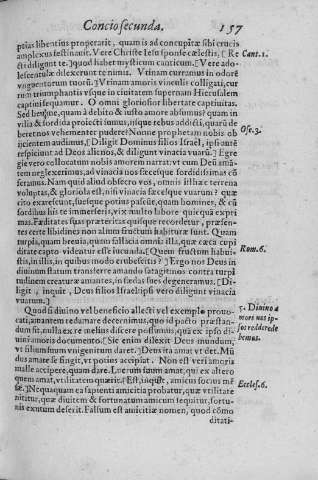 Concio secunda. 157
ptias libentius properarit, quam is ad concupitæ sibi crucis
amplexus festinauit. Vere Christe Iesu sponse cælestis, [Re
cti diligunt te.] quod habet mysticum canticum. [Vere ado-
lescentulæ dilexerunt te nimis. Vtinam curramus in odorē
vnguentorum tuorū.] Vtinam amoris vinculis colligati, cur
rum triumphantis vsque in ciuitatem supernam Hierusalem
captiui sequamur. O omni gloriosior libertate captiuitas.
Sed heu me, quam à debito & iusto amore absumus? quam in
vilia & sordida proiecti sumus, ijsque rebus addicti, quarū de
beret nos vehementer pudere? Nonne prophetam nobis ob
ijcientem audimus, [Diligit Dominus filios Israel, ipsi autē
respiciunt ad Deos alienos, & diligunt vinacia vuarū.] Egre
gie vero collocatum nobis amorem narrat: vt cum Deū amā-
tem neglexerimus, ad vinacia nos fæcesque sordidissimas cō
feramus. Nam quid aliud obsecro vos, omnis isthæc terrena
voluptas, & gloria est, nisi vinacia fæcesque vuarum? quæ
cito exarescunt, suesque potius pascūt, quam homines, & cū
sordibus his te immerseris, vix multo labore quicquā expri
mas. Fæditates suas præteritas quisque recordetur, præsen-
tes certe libidines non alium fructum habituræ sunt. Quam
turpia, quam breuia, quam fallacia omnia illa, quæ cæca cupi
ditate capto videntur esse iucunda. [Quem fructum habui-
stis, in illis, in quibus modo erubescitis?] Ergo nos Deus in
diuinum statum transferre amando satagit: nos contra turpi
tudinem creaturæ amantes, in fordes sues degeneramus. [Di-
ligit, inquit, Deus filios Israel: ipsi vero diligunt vinacia
vuarum.]
Quod si diuino vel beneficio allecti vel exemplo prouo-
cati, amantem redamare decernimus, quo id pacto præstan-
dum sit, nulla ex re melius discere possumus, quā ex ipso di-
uini amoris documento. [Sic enim dilexit Deus mundum,
vt filium suum vnigenitum daret.] Deus ita amat vt det. Mū
dus amare se fingit, vt potius accipiat. Non est veri amoris
malle accipere, quam dare. Lucrum suum amat, qui ex altero
quem amat, vtilitatem quærit. [Est, inquit, amicus socius mē
sæ.] Nequaquam ea sapienti amicitia probatur, quæ vtilitate
nititur, quæ diuitem & fortunatum amicum sequitur, fortu-
nis exutum deserit. Falsum est amicitiæ nomen, quod cōmo
ditati-
Cant. 1.
Ose. 3.
Rom. 6.
5. Diuino a
more nos ip-
sos reddere de
bemus.
Eccles. 6.